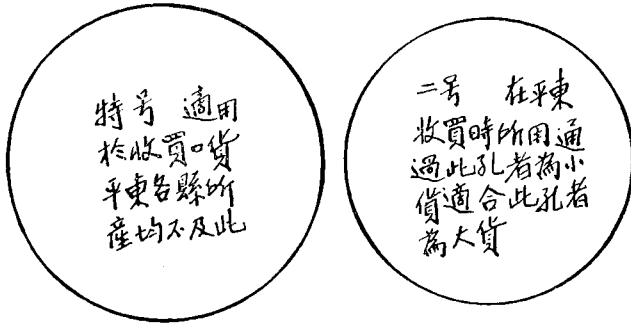 特号 適用
於收買口貨
平東各縣所
產均不及此
二号 在平東
收買時所用通
過此孔者為小
貨適合此孔者
為大貨